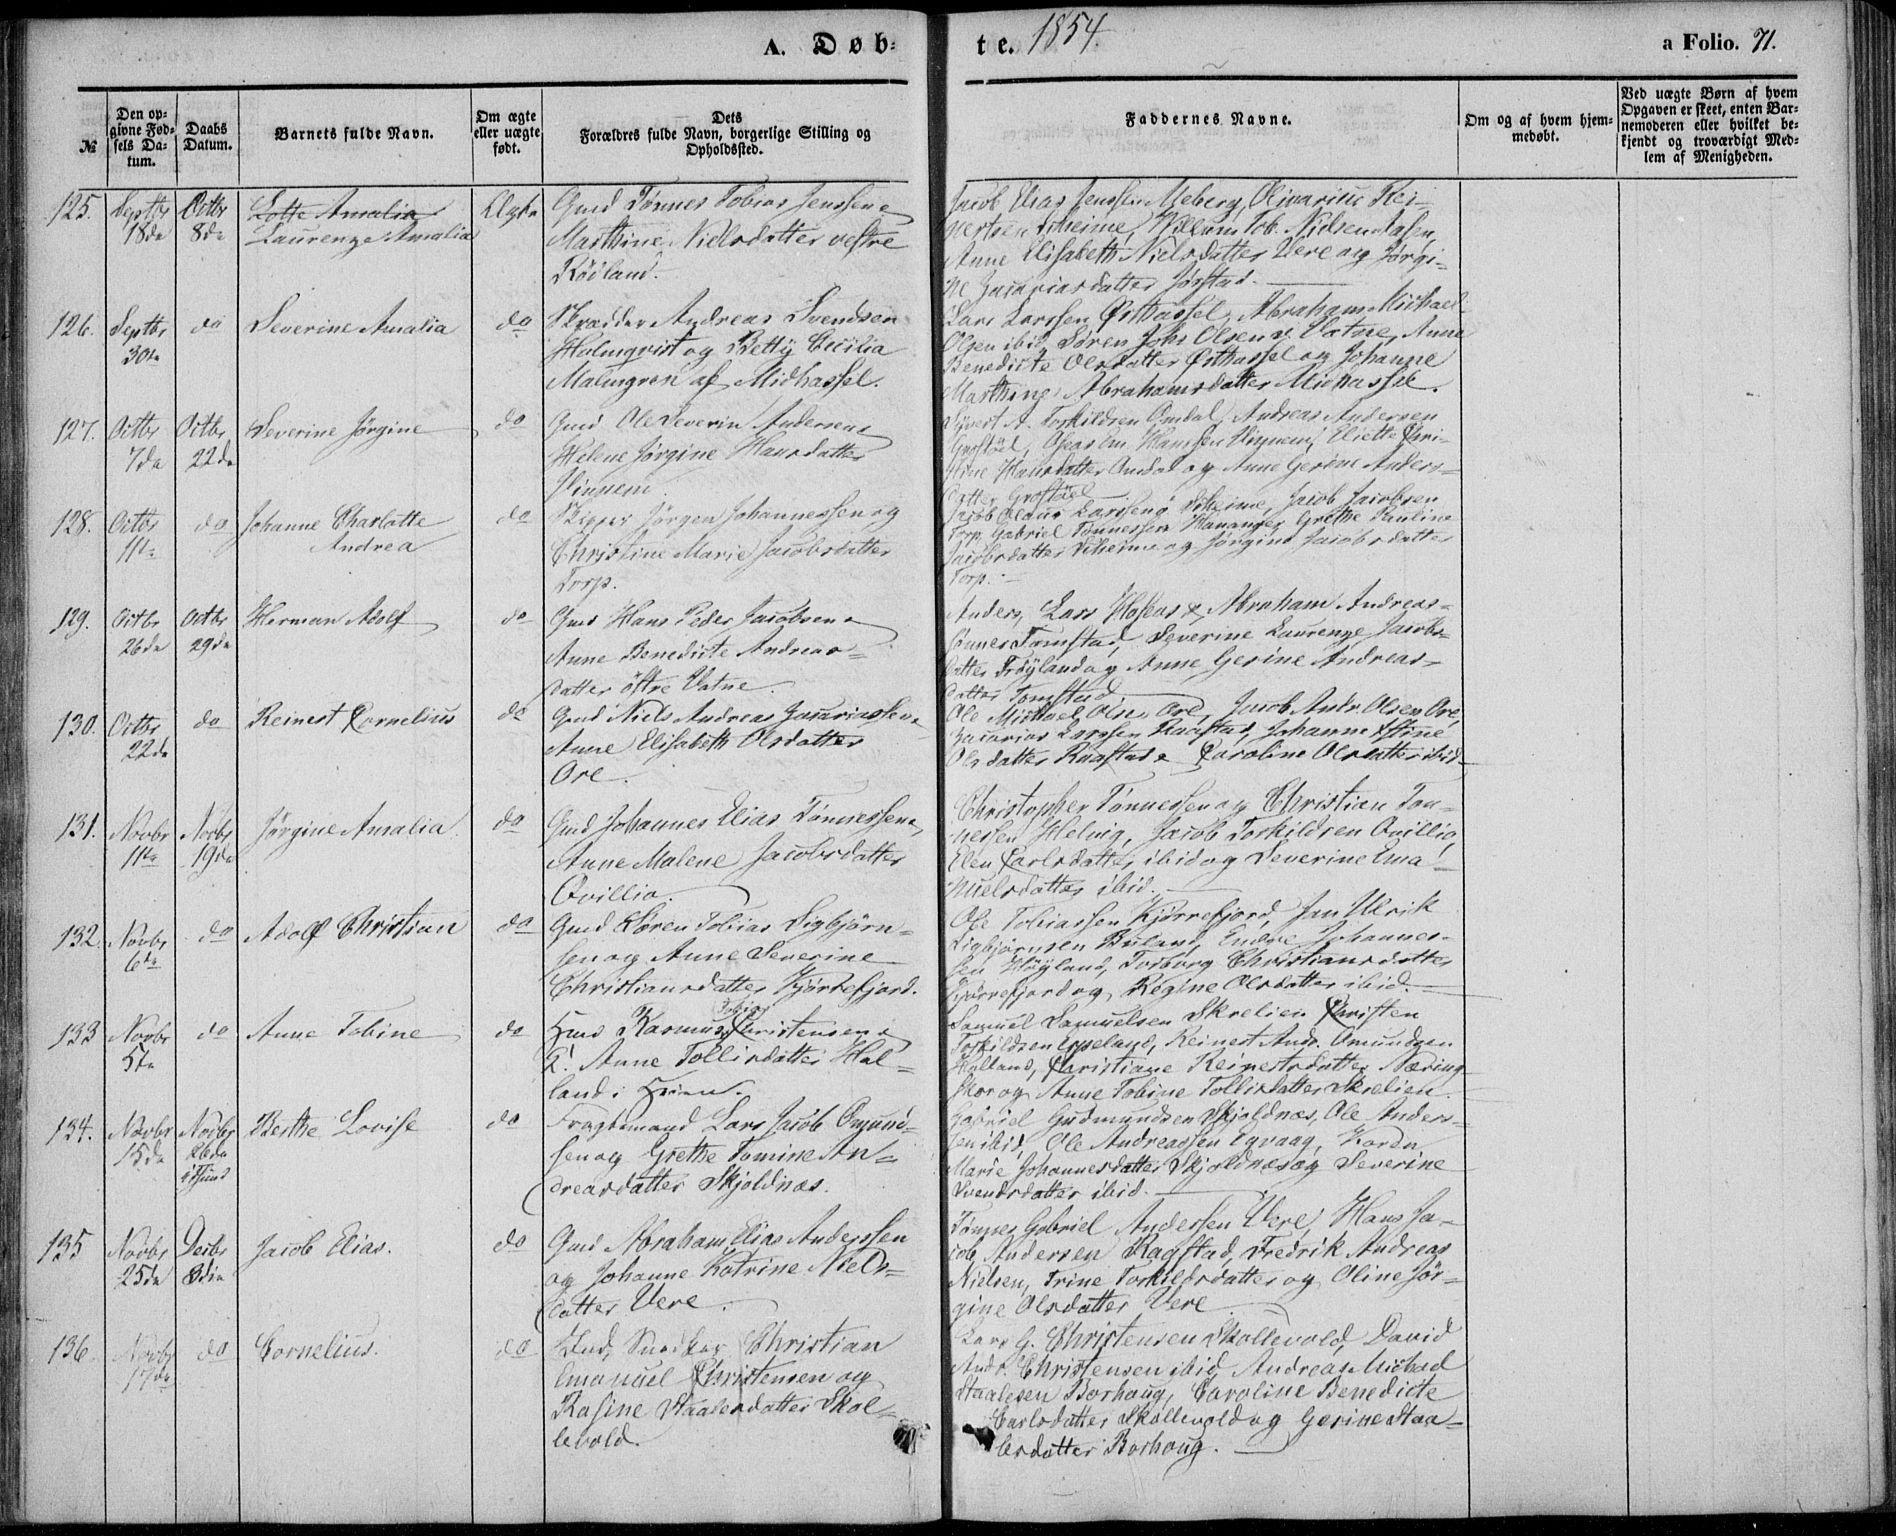 A. Døb-
te. 1854.
a Folio. 71.
№
Den op-
givne Fød-
sels Da-
tum.
Daabs
Datum.
Barnets fulde Navn.
Om ægte
eller uægte
født.
Dets
Forældres fulde Navn, borgerlige Stilling og
Opholdssted.
Faddernes Navne.
Om og af hvem hjem-
medøbt.
Ved uægte Børn af hvem
Opgaven er skeet, enten Bar-
nemoderen eller hvilket be-
kjendt og troværdigt Med-
lem af Menigheden.
125.
Septbr
18de
Octbr
8de
Lotte Amalia
Laurenze Amalia
Ægte
Gmd Tønnes Tobias Jenssen &
Marthine Nielsdatter vestre
Rødland.
Jacob Elias Jenssen Meberg, Olivarius Rei-
nertsen Viheime, Willum Tob. Nielsen Aasen,
Anne Elisabeth Nielsdatter Vere og Jørgi-
ne Zacariasdatter Jørstad.
126.
Septbr
30te
do
Severine Amalia
do
Skrædder Andreas Svendsen
Holmqvist og Betty Cecilia
Malmgren af Midhassel.
Lars Larssen Østhassel, Abraham Michael
Olsen ibid, Søren Johs Olsen v. Vatne, Anne
Benedicte Olsdatter Østhassel og Johanne
Marthine Abrahamsdatter Midhassel.
127.
Octbr
7de
Octbr
22de
Severine Jørgine
do
Gmd Ole Severin Andersen &
Helene Jørgine Hansdatter
Vinnem.
Sivert A. Torkildsen Omdal, Andreas Andersen
Grostøl, Hanssen Vinnem, Eliette Chri-
stine Hansdatter Omdal og Anne Gerine Anders-
datter Grostøel
128.
Octbr
11te
do
Johanne Charlotte
Andrea
do
Skipper Jørgen Johannessen og
Christine Marie Jacobsdatter
Torp.
Jacob Olaus Larssen Viheime, Jacob Jacobsen
Torp, Gabriel Tønnessen Hananger, Grethe Pauline
Jacobsdatter Viheime og Jørgine Jacobsdatter
Torp.
129.
Octbr
26de
Octbr
29de
Herman Adolf
do
Gmd Hans Peder Jacobsen &
Anne Benedicte Andreas-
datter østre Vatne.
Anders, Lars Hoseas & Abraham Andreas-
sønner Tomstad, Severine Laurenze Jacobs-
datter Frøyland og Anne Gerine Andreas-
datter Tomstad
130.
Octbr
22de
do
Reinert Cornelius
do
Gmd Niels Andreas Zacariassen &
Anne Elisabeth Olsdatter
Ore.
Ole Michael Olsen Ore, Jacob Andr. Olsen Ore,
Zacarias Larssen Raastad, Johanne Stine
Olsdatter Raastad & Caroline Olsdatter ibid
131.
Novbr
11te
Novbr
19de
Jørgine Amalia.
do
Gmd Johannes Elias Tønnessen &
Anne Malene Jacobsdatter
Qvillio.
Christopher Tønnessen og Christian Tøn-
nessen Helvig, Jacob Torkildsen Qvillio,
Elen Carlsdatter ibid og Severine Ema-
nuelsdatter ibid.
132.
Novbr
6te
do
Adolf Christian
do
Gmd Søren Tobias Sigbjørn-
sen og Anne Severine
Christiansdatter Kjørrefjord.
Ole Tobiassen Kjørrefjord, Jan Ulrik
Sigbjørnsen Buland, Endre Johannes-
sen Høyland, Torborg Christiansdatter
Kjørrefjord og Regine Olsdatter ibid.
133
Novbr
5te
do
Anne Tobine
do
Hmd Rasmus Tobias Christensen &
K. Anne Tollisdatter Hal-
land i
Samuel Samuelsen Skrelien, Christen
Torkildsen Opseland, Reinert Andr. Omundsen
Halland, Christiane Reinertsdatter Næring-
skor og Anne Tobine Tollisdatter Skrelien.
134.
Novbr
15de
Novbr
26de
i
Berthe Lovise
do
Fragtemand Lars Jacob Omund-
sen og Grethe Tomine An-
dreasdatter Skjoldnæs.
Gabriel Gudmundsen Skjoldnæs, Ole Anders-
sen ibid, Ole Andreassen Egvaag, Karen
Marie Johannesdatter Skjoldnæs og Severine
Svendsdatter ibid.
135
Novbr
25de
Decbr
3die
Jacob Elias.
do
Gmd Abraham Elias Anderssen
og Johanne Katrine Niels-
datter Vere.
Tønnes Gabriel Anderssen Vere, Hans Ja-
cob Andersen Ragstad, Fredrik Andreas
Nielsen, Trine Torkildsdatter og Oline Jør-
gine Olsdatter Vere
136.
Novbr
17de
do
Cornelius.
do
Hmd, Snedker Christian
Emanuel Christensen og
Rasine Staalesdatter Skol-
levold.
Lars G. Christensen Skollevold, David
Andr. Christensen ibid, Andreas Michael
Staalesen Borhaug, Caroline Benedicte
Carlsdatter Skollevold og Gerine Staa-
lesdatter Borhaug.